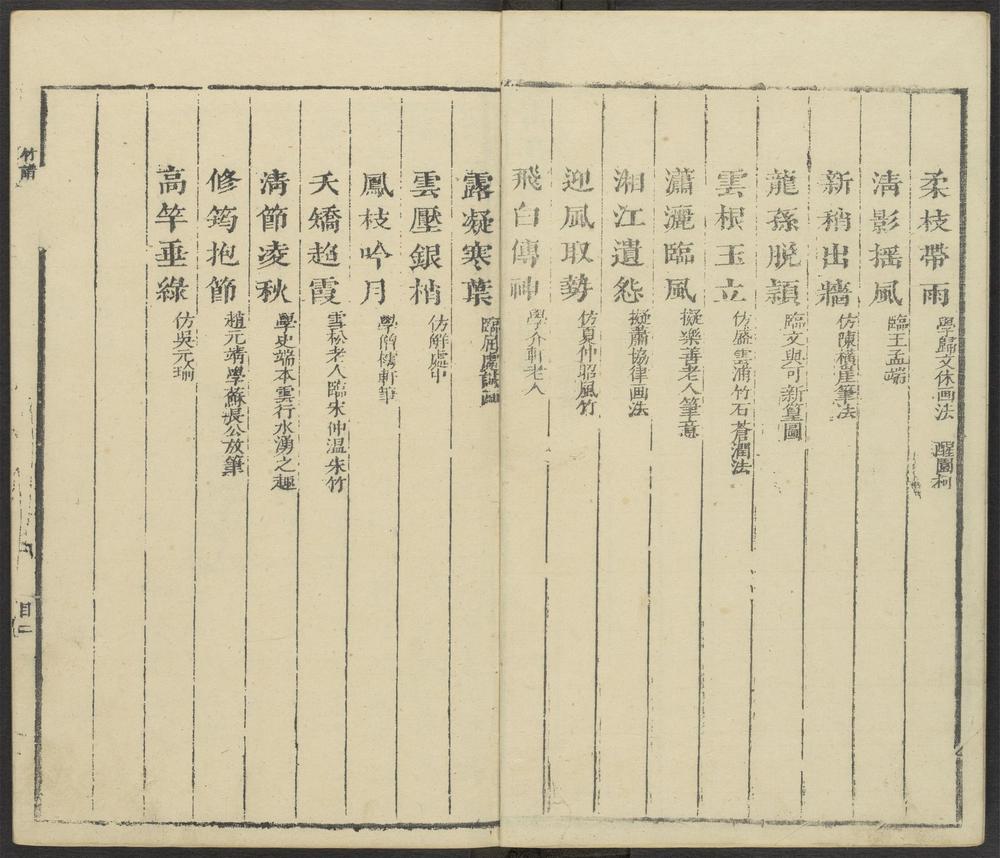 柔枝帶雨 學歸文休画法 醒園柯
清影摇風 臨王孟端
新稍出牆 仿陳橫崖筆法
龍孫脫頴 臨文與可新篁圖
雲根玉立 仿盛雲浦竹石蒼潤法
瀟灑臨風 擬樂善老人筆意
湘江遺怨 擬蕭協律画法
迎風取勢 仿夏仲昭風竹
飛白傳神 學介軒老人
露凝寒葉 臨屈處誠画
雲壓銀梢 仿解處中
鳳枝吟月 學筆
夭矯超霞 雪松老人臨宋仲温朱竹
清節凌秋 學史端本雲行水湧之趣
修筠抱節 趙元靖學蘇長公放筆
高竿垂綠 仿吳元瑜
竹譜
目二